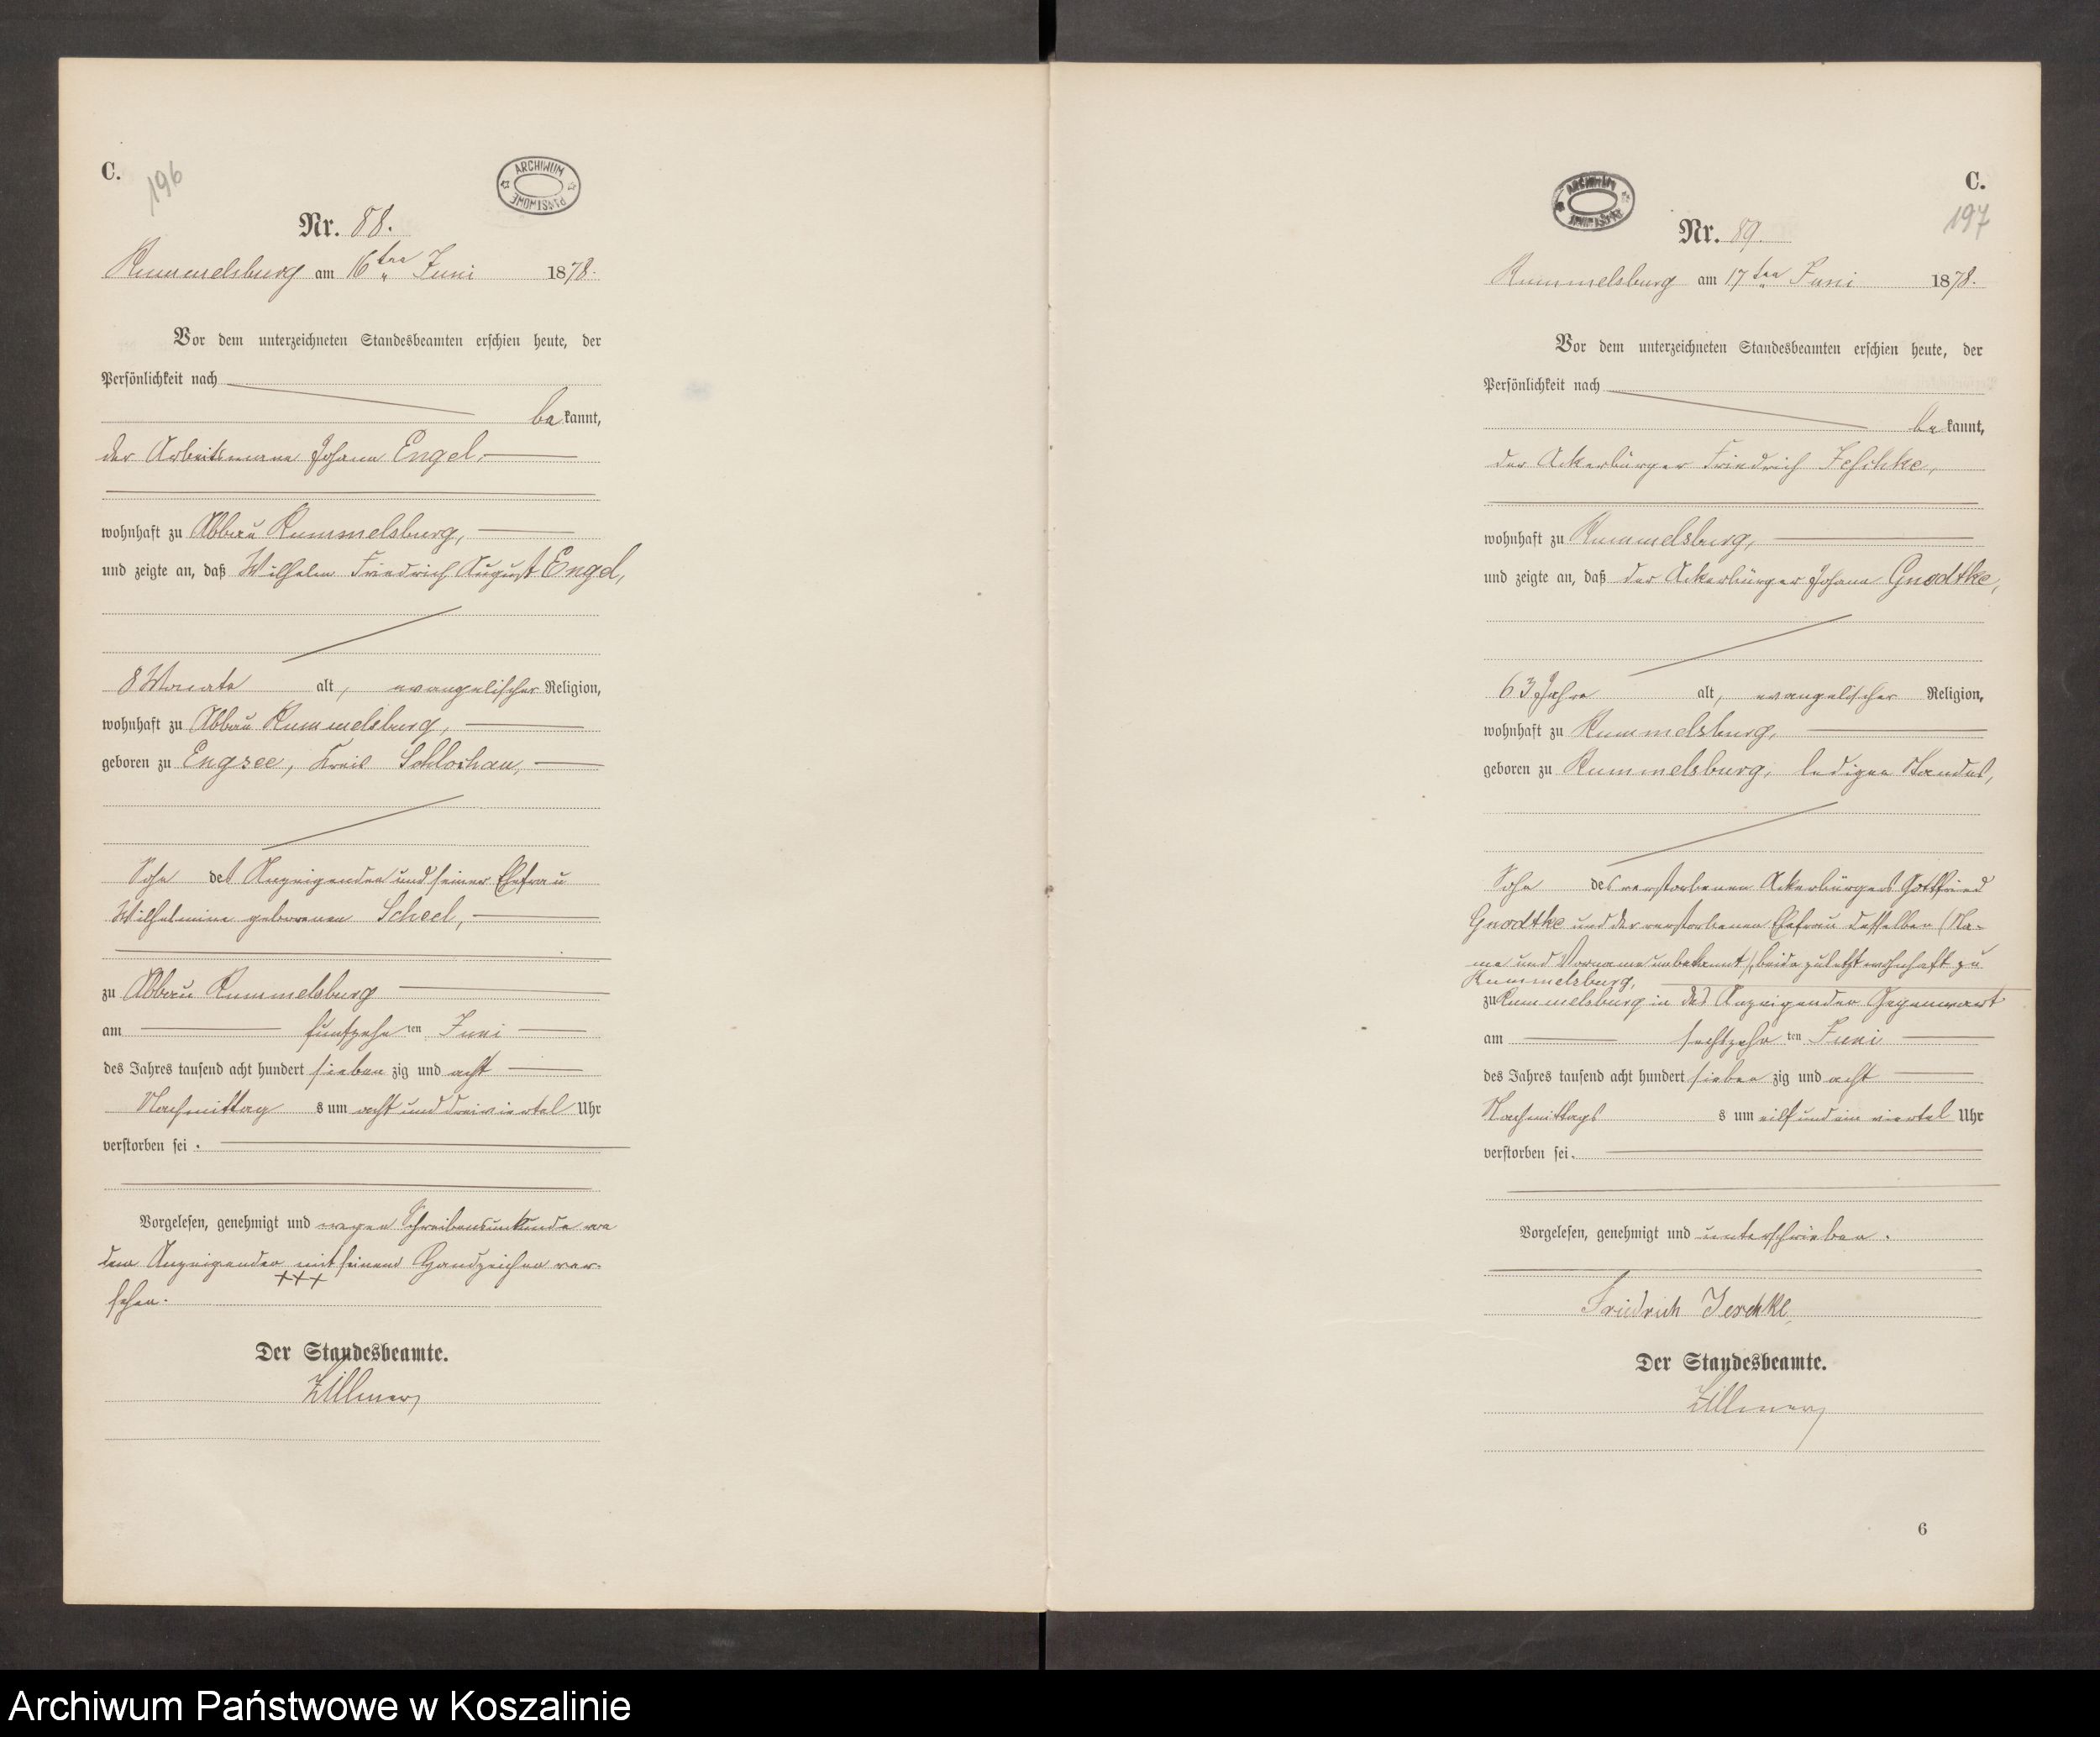 C.
196
ARCHIWUM PAŃSTWOWE
Nr. 88.
Rummelsburg am 16ten Juni 1878.
Vor dem unterzeichneten Standesbeamten erschien heute, der
Persönlichkeit nach
bekannt,
der Arbeitsmann Johann Engel,
wohnhaft zu Abbau Rummelsburg,
und zeigte an, daß Wilhelm Friedrich August Engel,
8 Monate alt, evangelischer Religion,
wohnhaft zu Abbau Rummelsburg,
geboren zu Engsee, Kreis Schlochau,
Sohn des Anzeigenden und seiner Ehefrau
Wilhelmine geborenen Scheel,
zu Abbau Rummelsburg
am funfzehnten Juni
des Jahres tausend acht hundert siebenzig und acht
Nachmittags um acht und dreiviertel Uhr
verstorben sei.
Vorgelesen, genehmigt und wegen Schreibensunkunde von
dem Anzeigenden mit seinem Handzeichen ver-
+++
sehen.
Der Standesbeamte.
Zillmer
C.
197
ARCHIWUM PAŃSTWOWE
Nr. 89.
Rummelsburg am 17ten Juni 1878.
Vor dem unterzeichneten Standesbeamten erschien heute, der
Persönlichkeit nach
bekannt,
der Ackerbürger Friedrich Jeschke,
wohnhaft zu Rummelsburg,
und zeigte an, daß der Ackerbürger Johann Gnodtke,
63 Jahre alt, evangelischer Religion,
wohnhaft zu Rummelsburg,
geboren zu Rummelsburg, ledigen Standes,
Sohn des verstorbenen Ackerbürgers Gottfried
Gnodtke und der verstorbenen Ehefrau desselben (Na-
me und Vorname unbekannt), beide zuletzt wohnhaft zu
Rummelsburg,
zu Rummelsburg in des Anzeigenden Gegenwart
am sechszehnten Juni
des Jahres tausend acht hundert siebenzig und acht
Nachmittags s um eilf und ein viertel Uhr
verstorben sei.
Vorgelesen, genehmigt und unterschrieben.
Friedrich Jeschke
Der Standesbeamte.
Zillmer
6
Archiwum Państwowe w Koszalinie